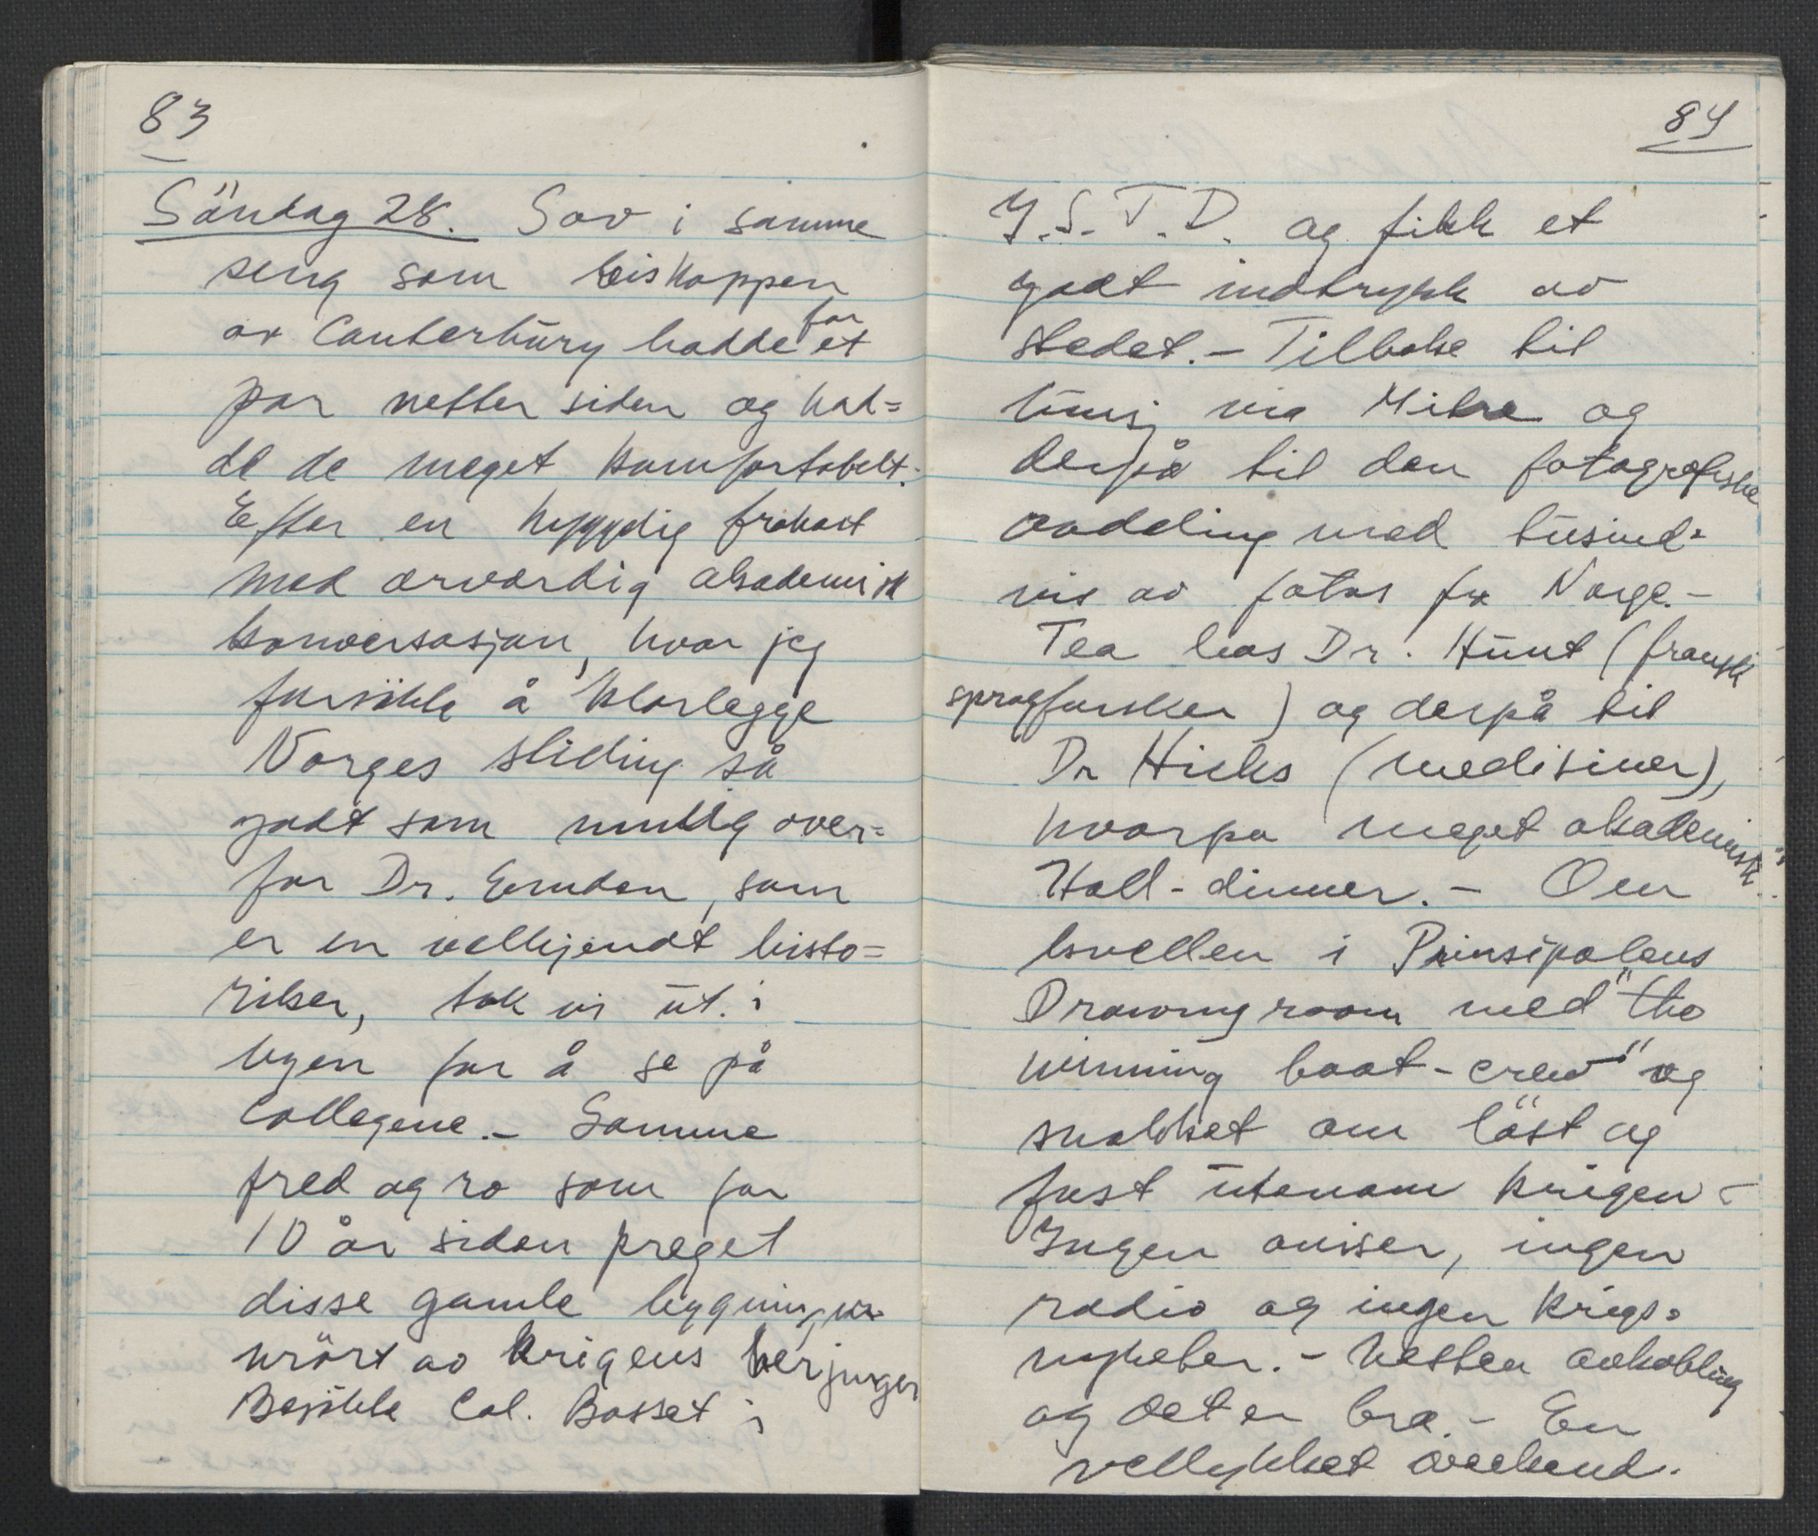 83
Söndag 28. Sov i samme
seng som biskoppen
av Canterbury hadde for et
par netter siden og had=
de de meget komfortabelt.
Efter en hyggelig frokost
med ærværdig akademisk
konversasjon, hvor jeg
forsökte å klarlegge
Norges stilling så
godt som mulig over=
for Dr. Emden, som
er en velkjendt histo=
riker, tok vi ut i
byen for å se på
Collegene. - Samme
fred og ro som for
10 år siden preget
disse gamle bygninger
urört av krigens herjinger
Besökte Col. Basset i
84
I.S.T.D. og fikk et
godt indtrykk av
stedet. - Tilbake til
via Mitre og
derpå til den fotografiske
avdeling med tusind=
vis av fotos fra Norge. -
Tea hos Dr. Hunt (fransk
sprogforsker) og derpå til
Dr Hicks (medisiner),
hvorpå meget akademisk
Hall-dinner. - Om
kvellen i Prinsipalens
Drawingroom med "the
winning boat-crew" og
snakket om löst og
fast utenom krigen -
Ingen aviser, ingen
radio og ingen krigs=
nyheter. - Nesten avkobling
og det er bra. - En
vellykket weekend.